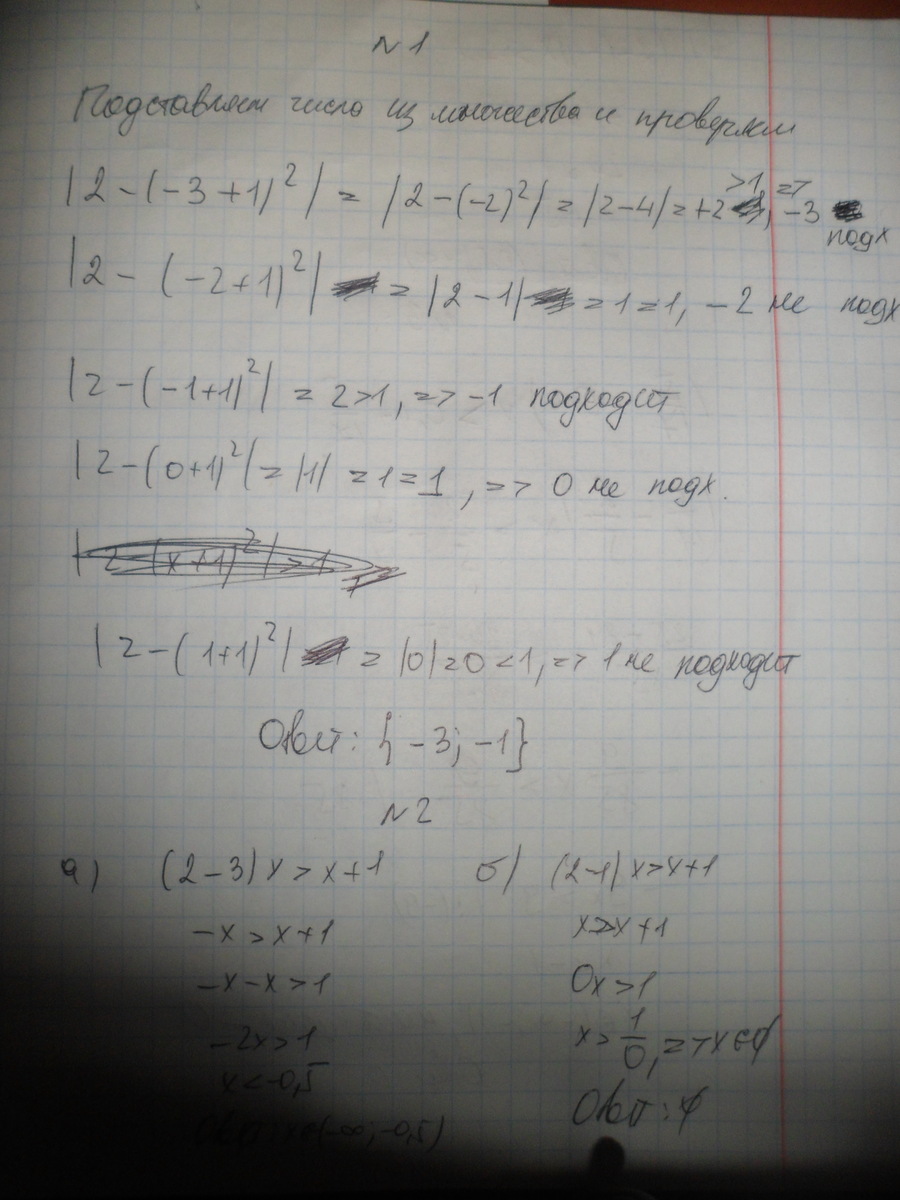 N 1
Подставляем числа из множества и проверяем
|2-(-3+1)²| = |2-(-2)²| = |2-4| = +2 >1, => -3 подх
|2-(-2+1)²| = |2-1| = 1 = 1, -2 не подх
|2-(-1+1)²| = 2>1, => -1 подходит
|2-(0+1)²| = |1| = 1 = 1, => 0 не подх.
|2-(x+1)²| > 1
|2-(1+1)²| = |0| = 0 < 1, => 1 не подходит
Ответ: {-3; -1}
N 2
а) (2-3)x > x+1
-x > x+1
-x-x > 1
-2x > 1
x < -0,5
Ответ: x∈(-∞; -0,5)
б) (2-1)x > x+1
x > x+1
0x > 1
x > 1/0, => x∈∅
Ответ: ∅